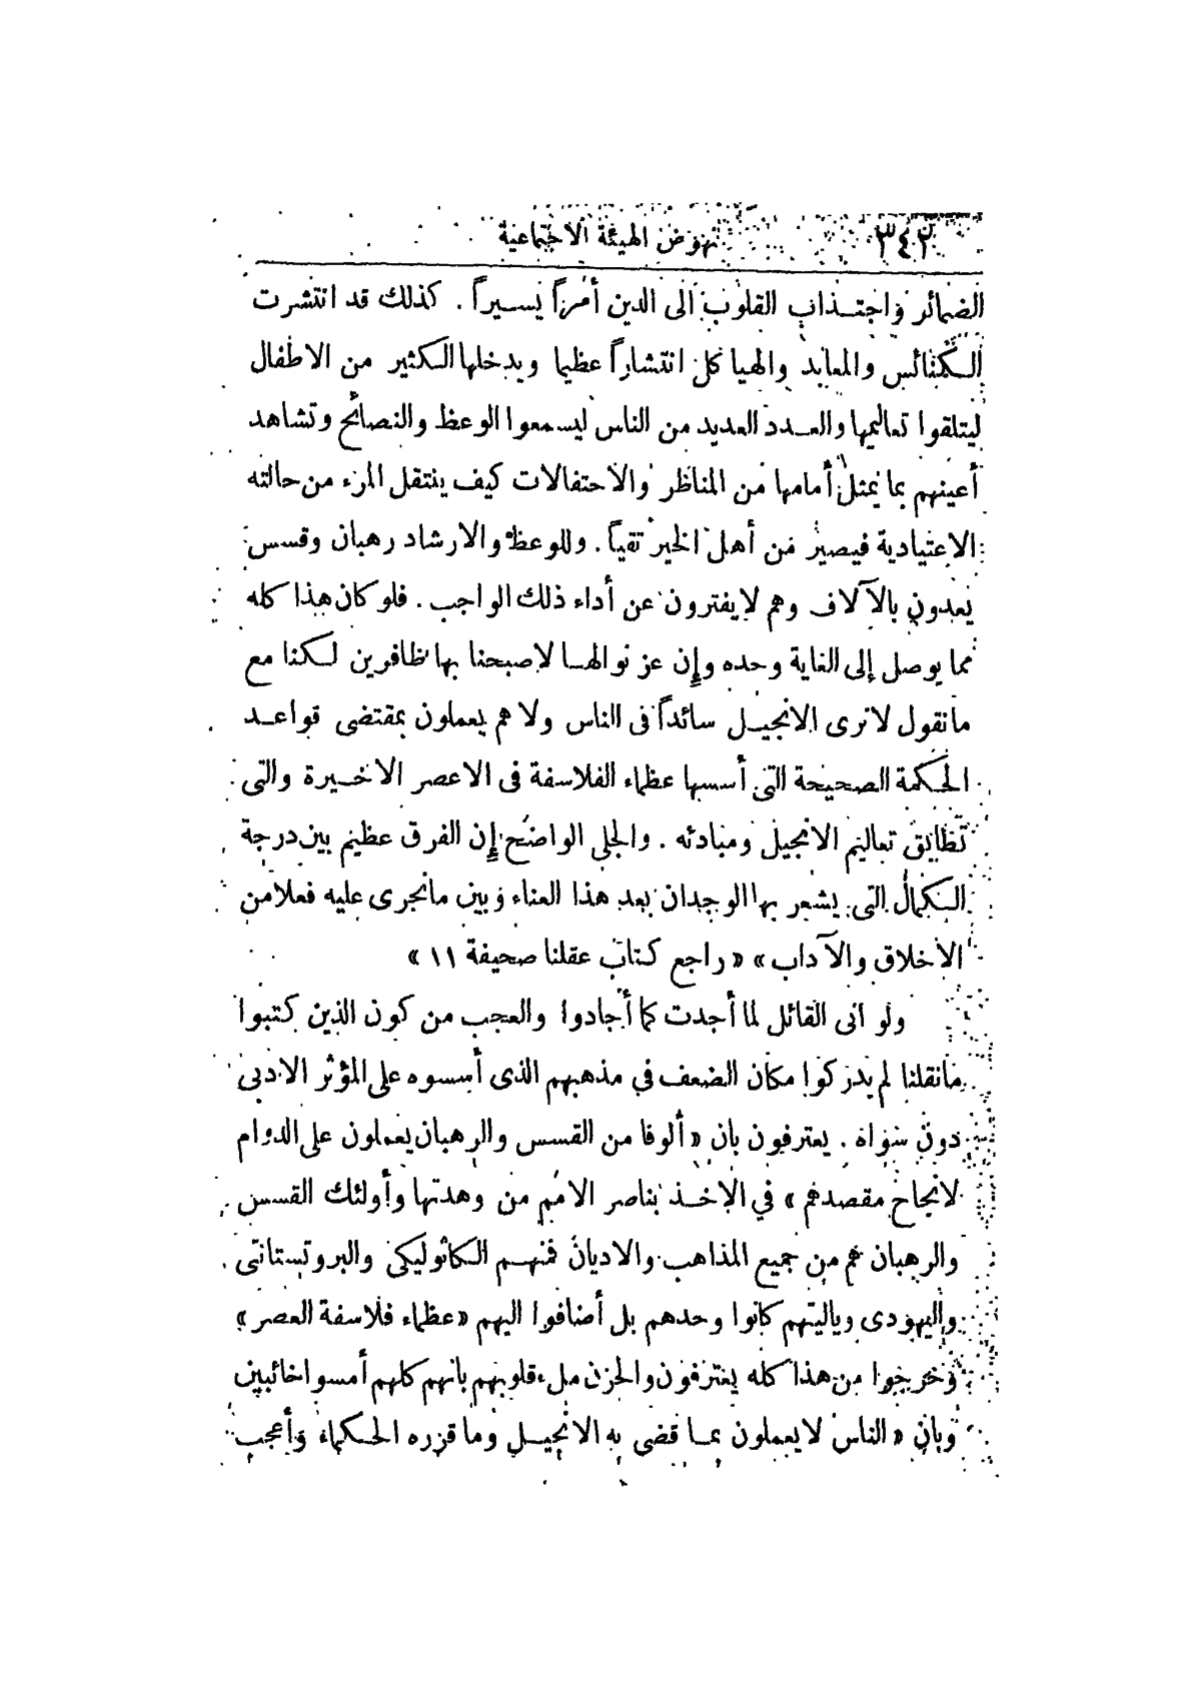 ٣٤٢ نهوض الهيئة الاجتماعية
الضمائر واجتذاب القلوب الى الدين أمراً يسيراً . كذلك قد انتشرت
الكنائس والمعابد والهياكل انتشاراً عظيما ويدخلها الكثير من الاطفال
ليتلقوا تعاليمها والعدد العديد من الناس ليسمعوا الوعظ والنصائح وتشاهد
أعينهم بما يمثل أمامها من المناظر والاحتفالات كيف ينتقل المرء من حالته
الاعتيادية فيصير من أهل الخير تقياً . وللوعظ والارشاد رهبان وقسس
يعدون بالآلاف وهم لا يفترون عن أداء ذلك الواجب . فلو كان هذا كله
مما يوصل إلى الغاية وحده وإن عز نوالها لاصبحنا بها ظافرين لكنا مع
ما نقول لا نرى الانجيل سائداً فى الناس ولا هم يعملون بمقتضى قواعد
الحكمة الصحيحة التى أسسها عظماء الفلاسفة فى الاعصر الاخيرة والتى
تطابق تعاليم الانجيل ومبادئه . والجلى الواضح إن الفرق عظيم بين درجة
الكمال التى يشعر بها الوجدان بعد هذا العناء وبين ما نجرى عليه فعلا من
الاخلاق والآداب » « راجع كتاب عقلنا صحيفة ١١ »
ولو انى القائل لما أجدت كما أجادوا والعجب من كون الذين كتبوا
ما نقلنا لم يدركوا مكان الضعف في مذهبهم الذى أسسوه على المؤثر الادبى
دون سواه . يعترفون بان « ألوفا من القسس والرهبان يعملون على الدوام
لانجاح مقصدهم » في الاخذ بناصر الامم من وهدتها وأولئك القسس
والرهبان هم من جميع المذاهب والاديان فمنهم الكاثوليكى والبروتستانتى
واليهودى وياليتهم كانوا وحدهم بل أضافوا اليهم « عظماء فلاسفة العصر »
وخرجوا من هذا كله يعترفون والحزن ملء قلوبهم بانهم كلهم أمسوا خائبين
وبان « الناس لا يعملون بما قضى به الانجيل وما قرره الحكماء وأعجب